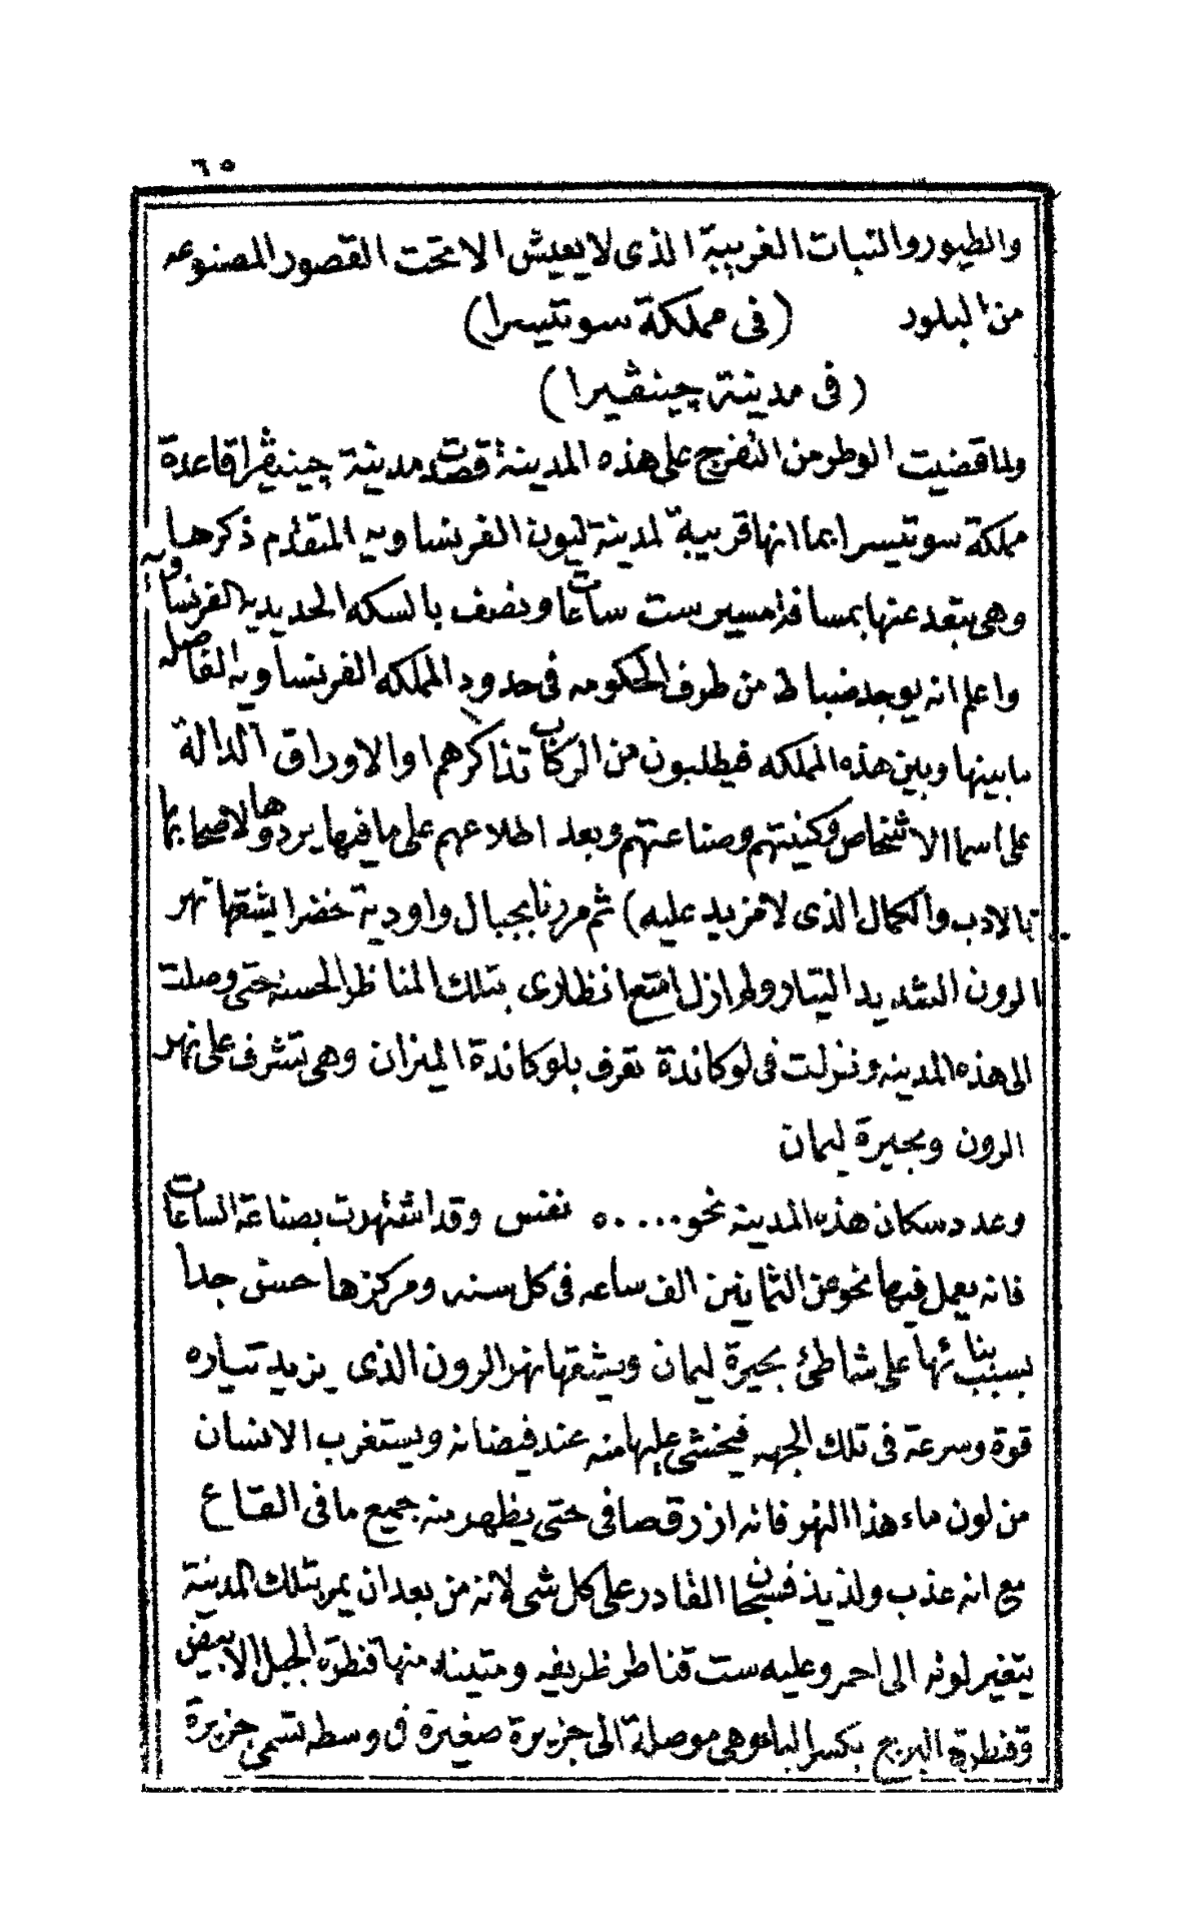 ٦٥
والطيور والنباتات الغريبة الذى لا يعيش الا تحت القصور المصنوعه
من البلور (فى مملكة سويتيسرا)
(فى مدينة چينڤيرا)
ولما قضيت الوطر من التفرج على هذه المدينة قصدت مدينة چينڤيرا قاعدة
مملكة سويتيسرا بما انها قريبة لمدينة ليون الفرنساويه المتقدم ذكرها
وهى تبعد عنها بمسافة مسير ست ساعات ونصف بالسكه الحديديه الفرنساويه
واعلم انه يوجد ضباط من طرف الحكومه فى حدود المملكه الفرنساويه الفاصله
ما بينها وبين هذه المملكه فيطلبون من الركاب تذاكرهم او الاوراق الدالة
على اسما الاشخاص وكنيتهم وصناعتهم وبعد اطلاعهم على ما فيها يردوها لاصحابها
بالادب والكمال الذى لا مزيد عليه) ثم مررنا بجبال واودية خضرا يشقها نهر
الرون الشديد التيار ولم ازل امتع انظارى بتلك المناظر الحسنه حتى وصلت
الى هذه المدينه ونزلت فى لوكاندة تعرف بلوكاندة الميزان وهى تشرف على نهر
الرون وبحيرة ليمان
وعدد سكان هذه المدينه نحو ٥٠٠٠٠ نفس وقد اشتهرت بصناعة الساعات
فانه يعمل فيها نحو عن الثمانين الف ساعه فى كل سنه ومركزها حسن جدا
بسبب بنائها على شاطئ بحيرة ليمان ويشقها نهر الرون الذى يزيد تياره
قوة وسرعة فى تلك الجهه فيخشى عليها منه عند فيضانه ويستغرب الانسان
من لون ماء هذا النهر فانه ازرق صافى حتى يظهر منه جميع ما فى القاع
مع انه عذب ولذيذ فسبحان القادر على كل شى لانه من بعد ان يمر بتلك المدينة
يتغير لونه الى احمر وعليه ست قناطر ظريفه ومتينه منها قنطرة الجبل الابيض
وقنطرة البريج بكسر الباء وهى موصلة الى جزيرة صغيرة فى وسطه تسمى جزيرة